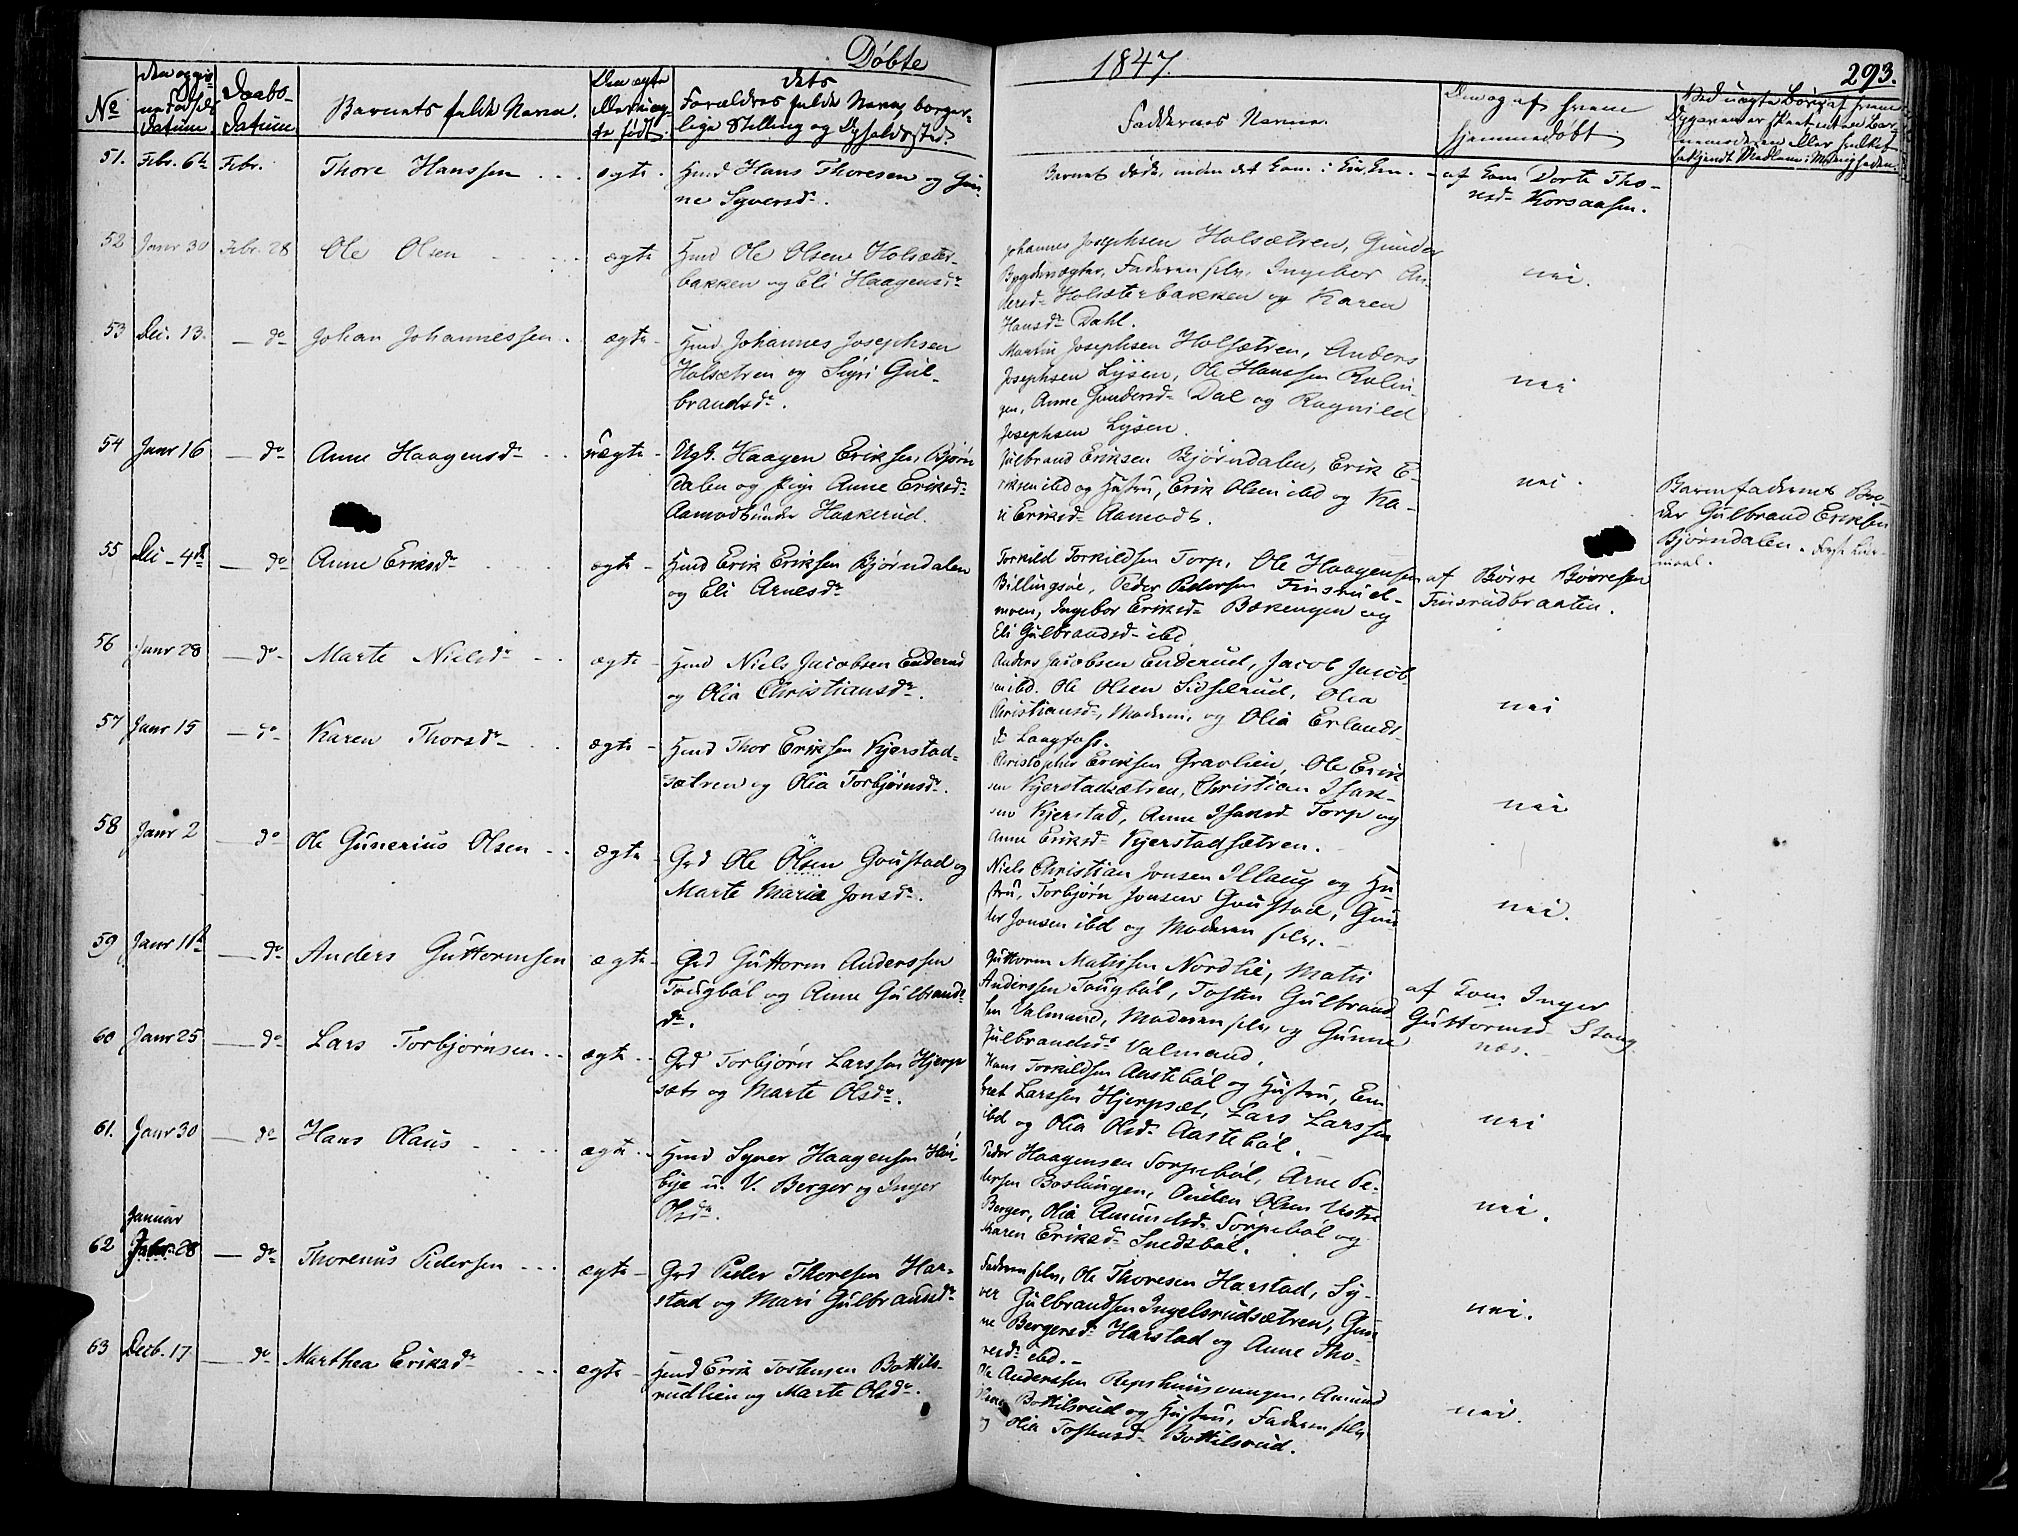 Døbte
1847.
293.
No
Datum
Daabs-
Datum
Barnets fulde Navn.
Den ægte
te født.
dets
Forældres fulde Navne, borger-
lige Stilling og Opholdssted.
Faddernes Navne.
Den og af hvem
hjemmedøbt
51. Febr. 6te Febr. Thore Hanssen ægte Hmd Hans Thoresen og Gun-
ne Syversdr.
Barnet døde, inden det kom i Kirken. af Dorte Tho-
resdr Korsaasen.
52 Janr 30 Febr. 28 Ole Olsen ægte Hmd Ole Olsen Holsæter-
bakken og Eli Haagensdr
Johannes Josephsen Holsætren, Gunder
Faderen selv, Ingebor An-
dersdr Holsæterbakken og Karen
Hansdr Dahl.
nei.
53 Dec. 13. do Johan Johannessen ægte Hmd Johannes Josephsen
Holsætren og Sigri Gul-
brandsdr.
Josephsen Holsætren, Anders
Josephsen Lysen, Ole Hanssen
Anne Gundersdr Dal og Ragnild
Josephsen Lysen.
nei
54 Janr 16 do Anne Haagensdr uægte Ugk. Haagen Eriksen Bjørn
dalen og Pige Anne Eriksdr
Aamodt under Haakerud.
Gulbrand Eriksen Bjørndalen, Erik E-
riksen ibd og Hustru, Erik Olsen ibd og Ka-
ri Eriksdr Aamodt.
nei.
Barnefaderens Bro-
der Gulbrand Eriksen
Bjørndalen. Første Leier-
maal.
55 Dec 4de do Anne Eriksdr ægte Hmd Erik Eriksen Bjørndalen
og Eli Arnesdr
Torkild Torkildsen Torp, Ole Haagensen
Billingsøe, Peder Pedersen Finsrud-
moen, Ingebor Eriksdr Bækengen og
Eli Gulbrandsdr ibd
af Børre Børresen
Finsrudbraaten.
56 Janr 28 do Marte Nielsdr ægte Hmd Niels Jacobsen Enderud
og Olia Christiansdr.
Anders Jacobsen Enderud, Jacob Jacob-
sen ibd. Ole Olsen Sidselrud, Olia
Christiansdr, Moderen, og Olia Erlands-
dr Langfoss.
nei
57 Janr 15 do Karen Thorsdr ægte Hmd Thor Eriksen Kjerstad-
sætren og Olia Torbjørnsdr.
Christopher Eriksen Gravlien, Ole Erik
sen Kjerstadsætren, Christian Isak-
sen Kjerstad, Anne Isaksdr Torp og
Anne Eriksdr Kjerstadsætren.
nei
58 Janr 2 do Ole Gunerius Olsen ægte Grd Ole Olsen Goustad og
Marte Maria Jonsdr.
Niels Christian Jonsen Illaug og Hu-
stru, Torbjørn Jonsen Goustad, Gun
der Jonsen ibd og Moderen selv.
nei.
59 Janr 11te do Anders Guttormsen ægte Grd Guttorm Anderssen
Taugbøl og Anne Gulbrands-
dr.
Guttorm Mathisen Nordlie, Matis
Anderssen Taugbøl, Tosten Gulbrand
sen Valmand, Moderen selv, og Gunne
Gulbrandsdr Valmand.
af Inger
Guttormsd. Stang
næs.
60 Janr 25 do Lars Torbjørnsen ægte Grd Torbjørn Larssen Hjerp
sæt og Marte Olsdr.
Hans Torkildsen Aastebøl og Hustru, En-
gret Larssen Hjerpsæt, Lars Larssen
ibd og Olia Olsdr Aastebøl.
nei
61. Janr 30 do Hans Olaus ægte Hmd Syver Haagensen
bye u. V. Berger og Inger
Olsdr.
Peder Haagensen Torpebøl, Arne Pe-
dersen Boslungen, Olsen Vestre
Berger, Olia Amundsdr Torpebøl og
Karen Eriksdr Snedsbøl.
nei.
62 Januar
28 do Thorenus Pedersen ægte Grd Peder Thoresen Har-
stad og Mari Gulbrandsdr
Faderen selv, Ole Thoresen Harstad, Sy-
ver Gulbrandsen Ingelsrudsætren, Gun
ne Bergersdr Harstad og Anne Tho-
resdr ibd.
nei.
63 Decb. 17 do Marthea Eriksdr ægte Hmd Erik Tostensen Bottils-
rudlien og Marte Olsdr.
Ole Anderssen Amund
Bottilsrud og Hustru, Faderen selv
og Olia Tostensdr Bottilsrud.
nei.